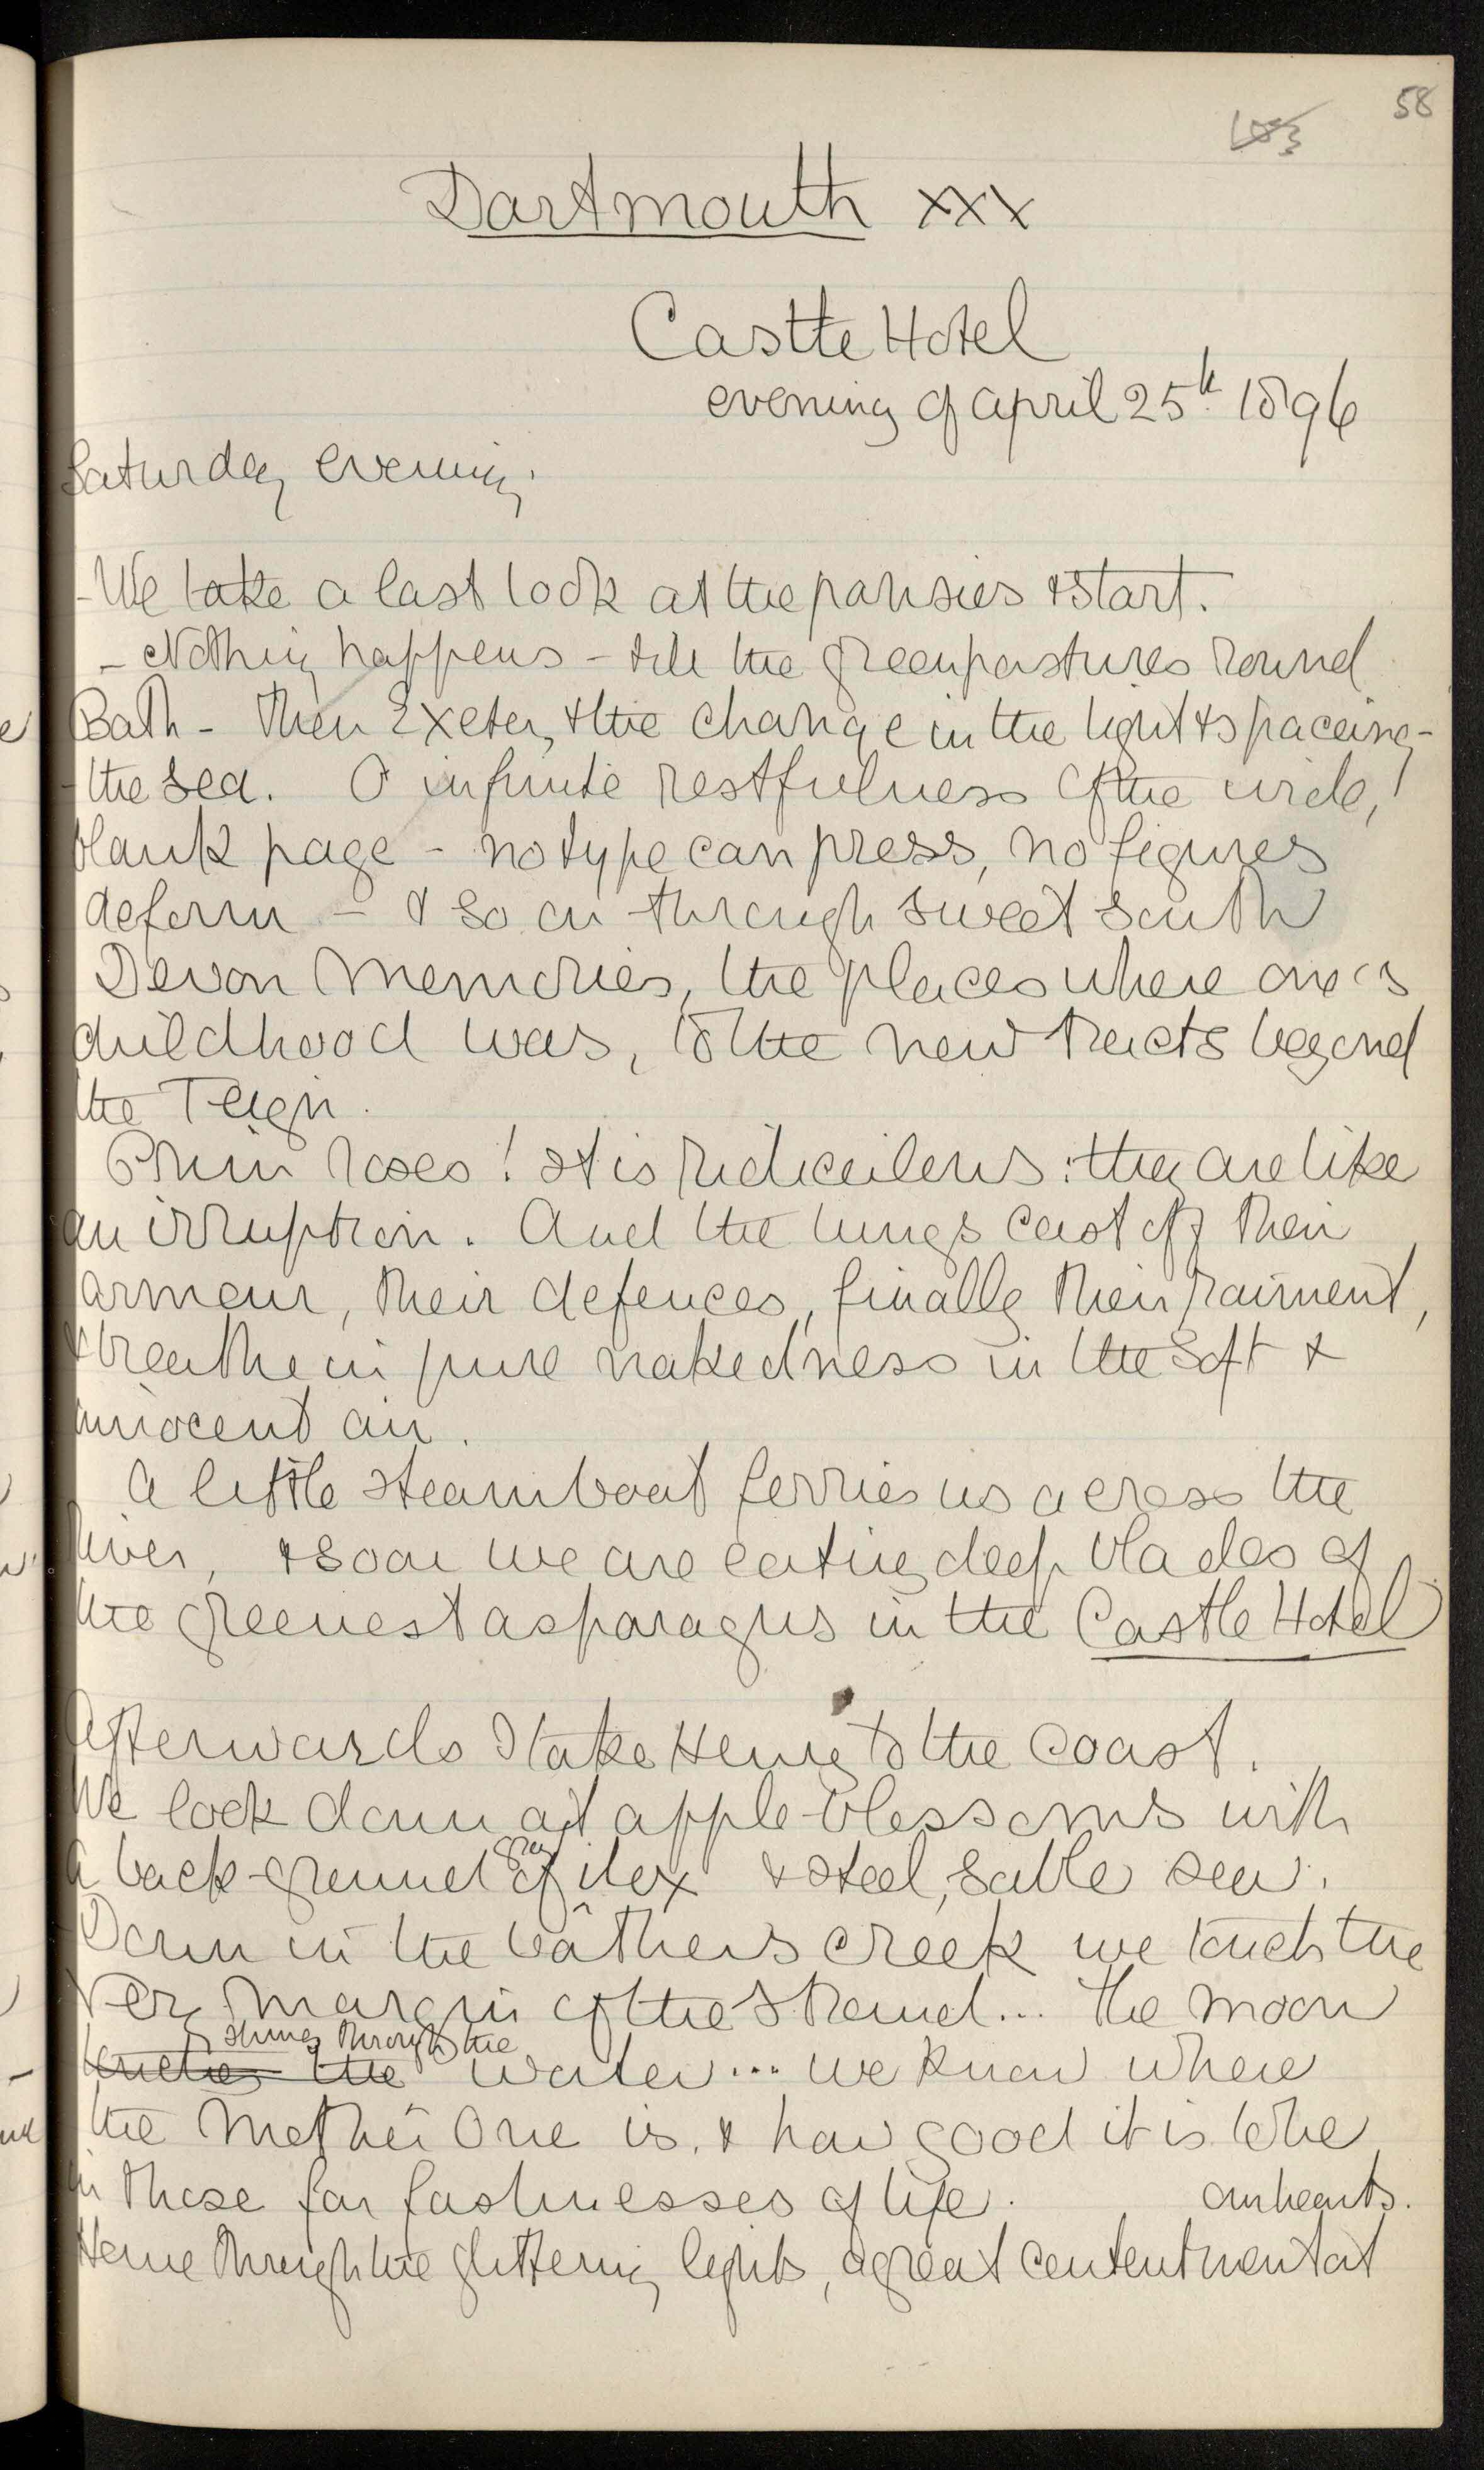 58
Dartmouth xxx
Castle Hotel
evening of april 25th 1896
Saturday evening.
- We take a last look at the pansies & start.
- Nothing happens - till the green pastures round
Bath - Then Exeter, & the change in the light & spaceing -
- the sea. O infinite restfulness of the wide,
blank page - no type can press, no figures
deform - & so on through sweet south
Devon Memories, the places where one's
childhood was, to the new tracts beyond
the Teign.
Primroses! It is ridiculous: they are like
an irruption. And the lungs cast off their
armour, their defences, finally their raiment,
& breathe in pure nakedness in the soft &
innocent air.
A little steamboat ferries us across the
river, & soon we are eating deep blades of
the greenest asparagus in the Castle Hotel
Afterwards I take Henry to the coast.
We look down at apple-blossoms with
a back-ground of gray ilex & steel, sable sea.
Down in the bathers creek we touch the
Very margin of the Strand... The moon
touches the shines through the water... we know where
the Mother One is, & how good it is to be
in these far fastnesses of life.
Home through the glittering lights, a great contentment at
our hearts.